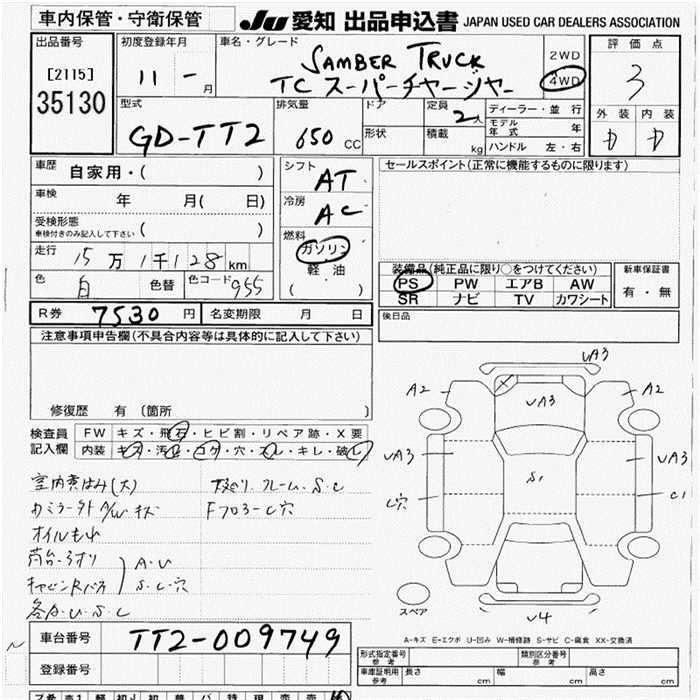 車内保管・守衛保管
JU 愛知 出品申込書 JAPAN USED CAR DEALERS ASSOCIATION
出品番号
[2115]
35130
初度登録年月
11 - 月
車名・グレード
SAMBER TRUCK
TC スーパーチャージャー
2WD
4WD
評価点
3
外装 内装
D D
型式
GD-TT2
排気量
650 CC
ドア
形状
定員
2人
積載
kg
ディーラー・並行
モデル年式 年
ハンドル 左・右
車歴 自家用・( )
車検 年 月( 日)
受検形態
車検付きのみ記入して下さい ( )
走行 15万1千128km
色 白 色替 色コード 955
シフト
AT
冷房
AC
燃料
ガソリン
軽油
( )
セールスポイント(正常に機能するものに限ります)
装備品(純正品に限り○をつけてください)
PS PW エアB AW
SR ナビ TV カワシート
新車保証書
有・無
後日品
R券 7530 円 名変期限 月 日
注意事項申告欄(不具合内容等は具体的に記入して下さい)
修復歴 有 〔箇所 〕
検査員記入欄
FW キズ・飛石・ヒビ割・リペア跡・X要
内装 キズ・汚れ・コゲ・穴・スレ・キレ・破レ
室内黄ばみ(大)
下廻り フレーム・S・C
カミラー外 A/W キズ
Fフロアー C穴
オイルもれ
荷台・うすり
A・U
S・C・穴
各A・U・S・C
UA3
A2
A2
UA3
UA3
UA3
S1
C穴
C1
U4
スペア
A-キズ E-エクボ U-凹み W-補修跡 S-サビ C-腐食 XX-交換済
車台番号 TT2-009749
登録番号
形式指定番号
参考
類別区分番号
参考
車庫証明用
参考
長さ cm 幅 cm 高さ cm